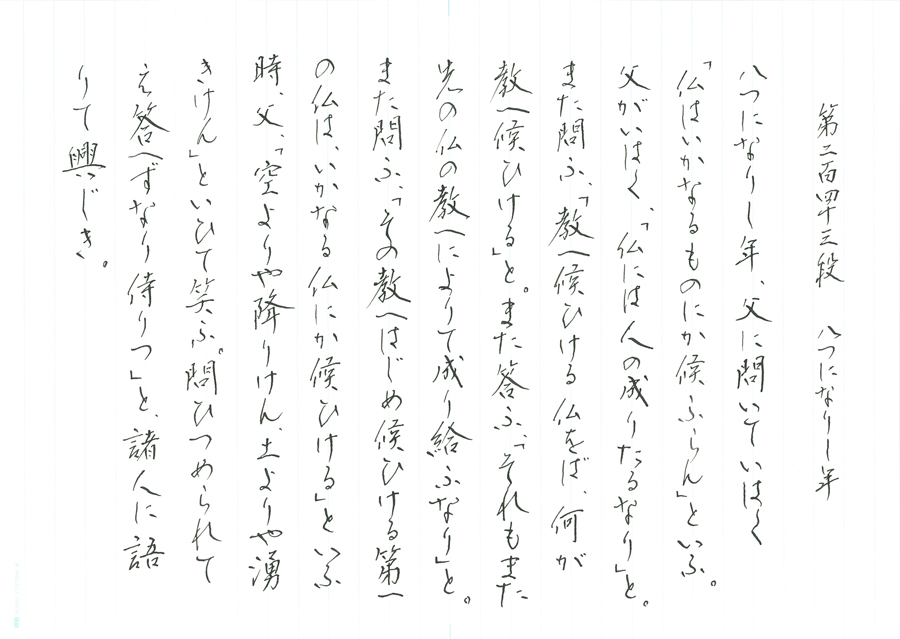 第二百四十三段　八つになりし年
八つになりし年、父に問いていはく
「仏はいかなるものにか候ふらん」といふ。
父がいはく、「仏には人の成りたるなり」と。
また問ふ、「教へ候ひける仏をば、何が
教へ候ひける」と。また答ふ、「それもまた
先の仏の教へによりて成り給ふなり」と。
また問ふ、「その教へはじめ候ひける第一
の仏は、いかなる仏にか候ひける」といふ
時、父、「空よりや降りけん、土よりや湧
きけん」といひて笑ふ。問ひつめられて
え答へずなり侍りつ」と、諸人に語
りて興じき。